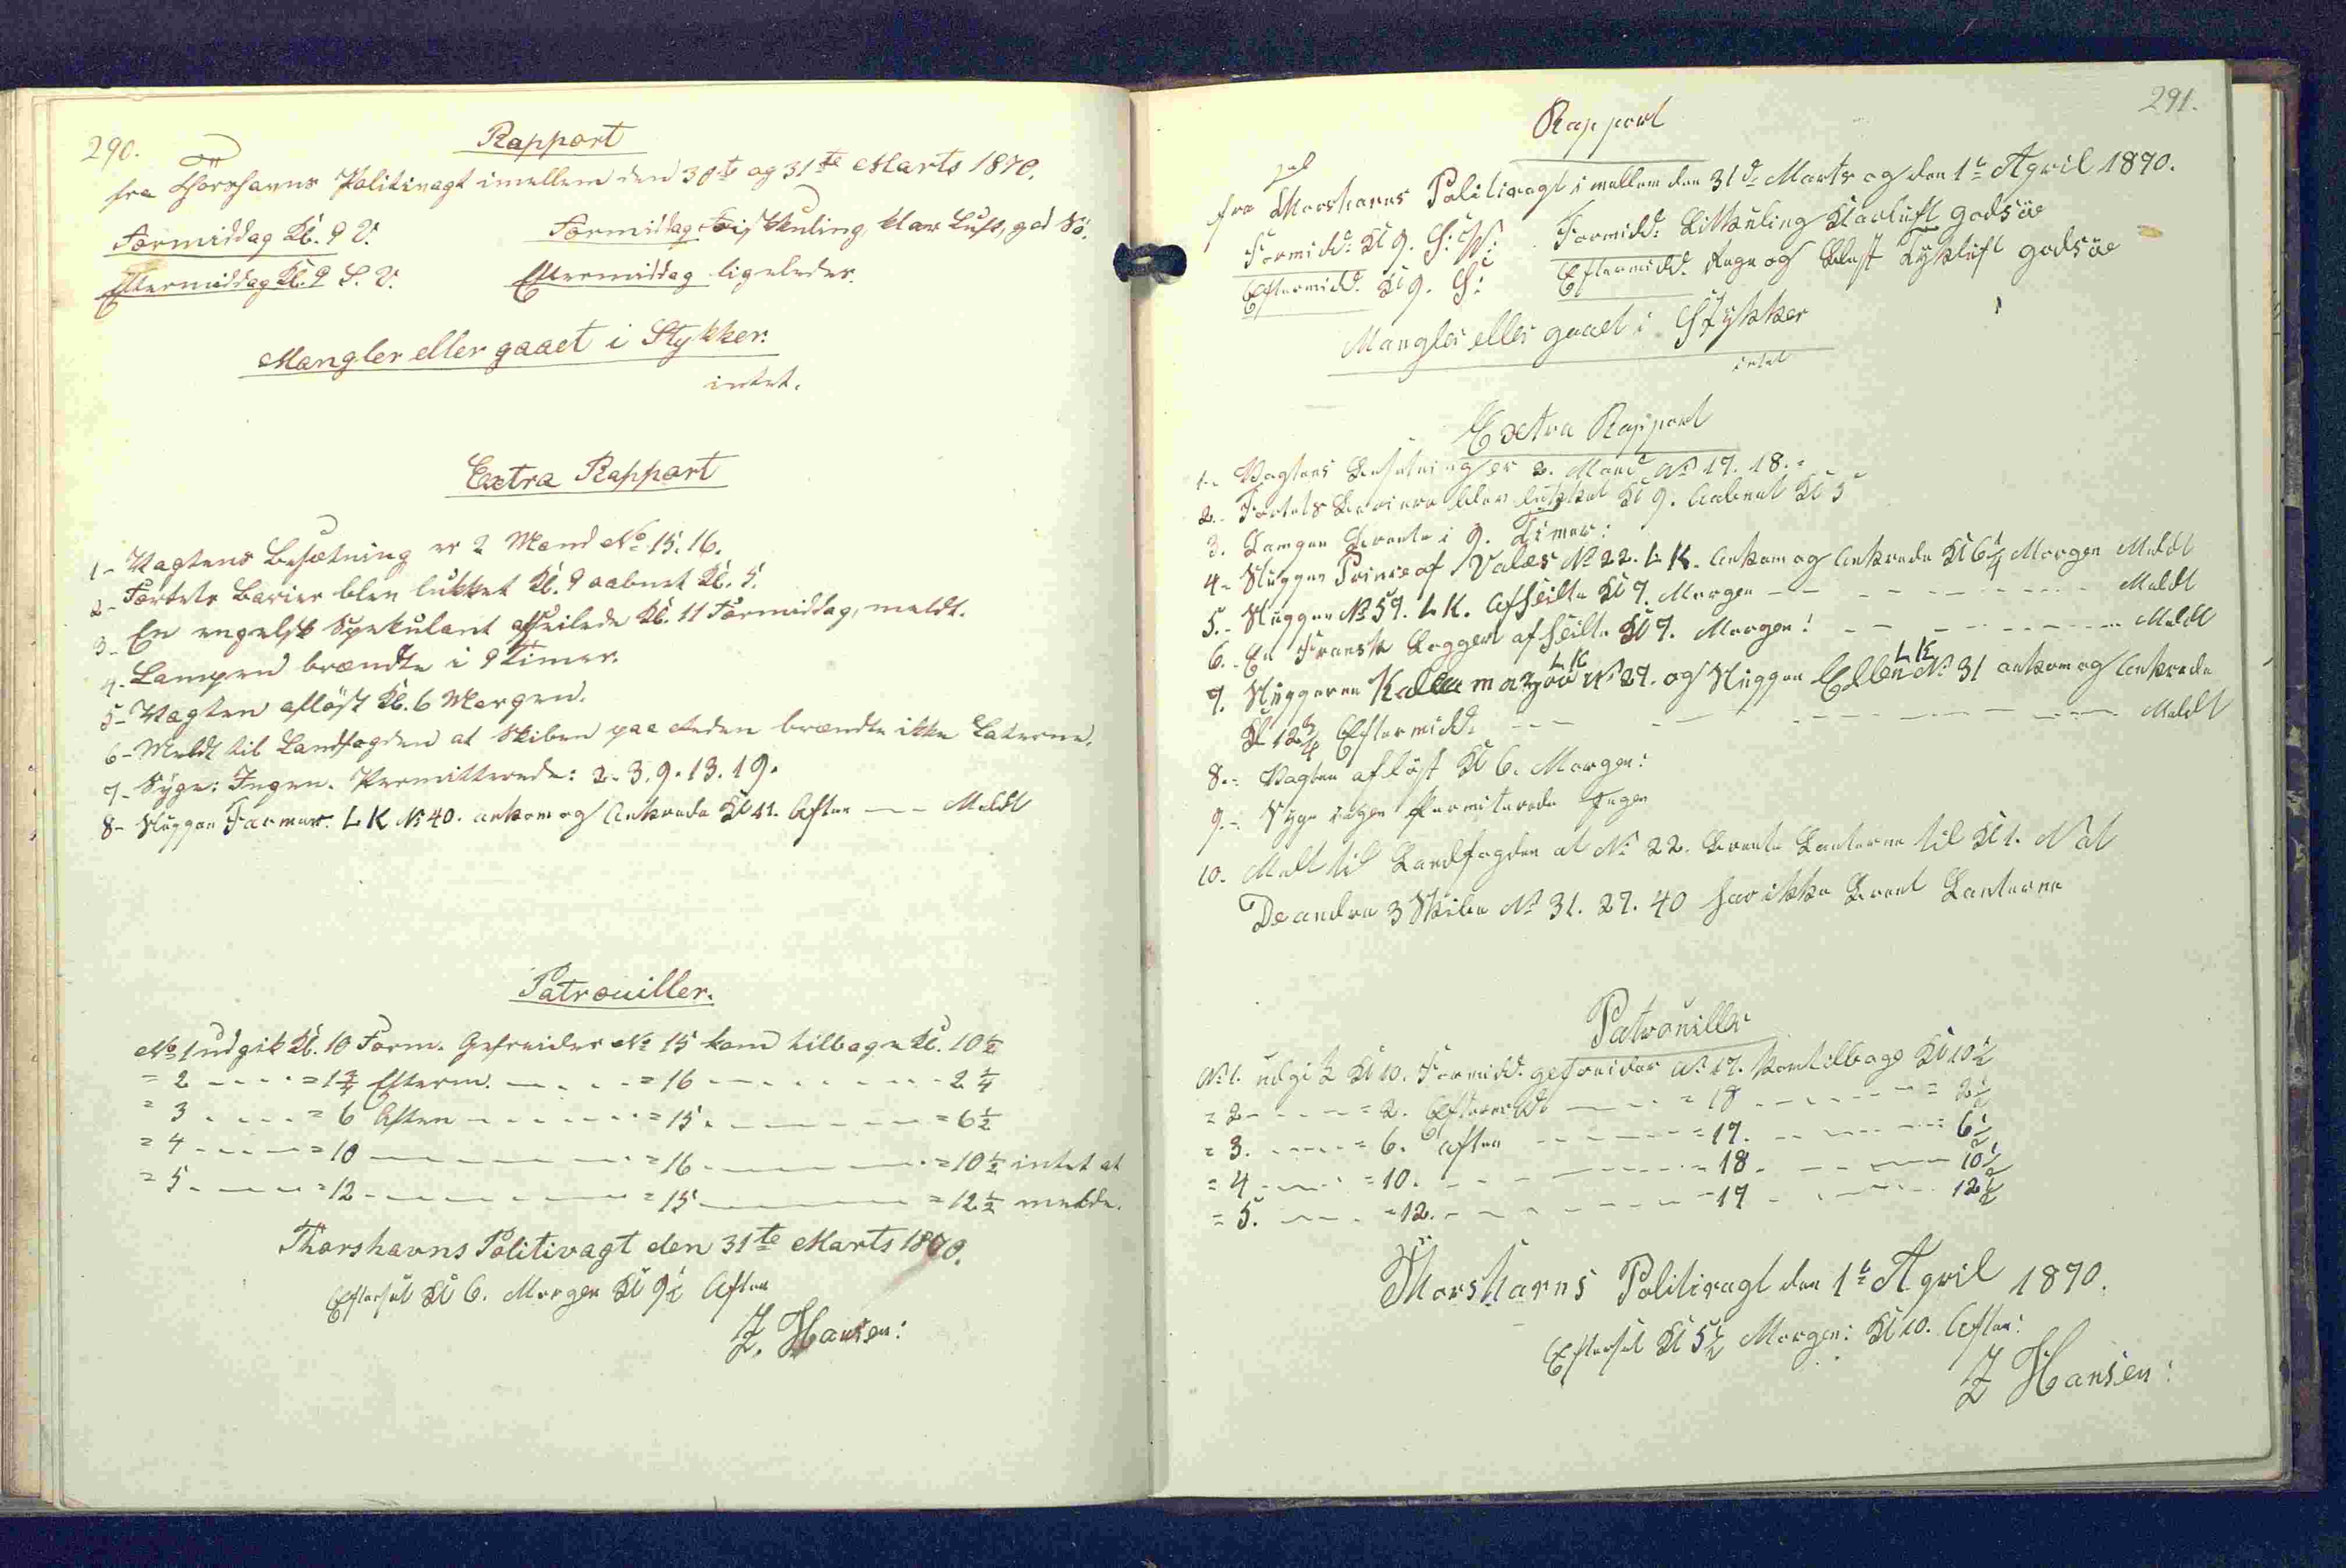 290.
Rapport
fra Thorshavns Politivagt imellem den 30te og 31te Marts 1890.
Formiddag Kl. 9 V.
Formiddag frisk Kuling, klar Luft, god Sö.
Eftermiddag Kl. 9 S. V.
Eftermiddag ligeledes.
Mangler eller gaaet i Stykker.
intet.
Extra Rapport
1- Vagtens Besætning er 2 Mand No 15. 16.
2- Fortets Barier blev lukket Kl. 9 aabnet Kl. 5.
3- En engelsk Spekulant afseilede Kl. 11 Formiddag, meldt.
4- Lampen brændte i 9 Timer.
5- Vagten aflöst Kl. 6 Morgen.
6- Meldt til Landfogden at Skiben paa Reden brændte ikke Laterne.
7- Syge: Ingen. Permitterede: 2. 3. 9. 13. 19.
8- Sluggen Farmer. L K No 40. ankom og Ankrede Kl 11. Aften - - - Meldt
Patrouiller.
No 1 udgik Kl. 10 Form. Gefreider No 15 kom tilbage Kl. 10 1/2
= 2 - - - - = 1 3/4 Efterm. - - - - = 16 - - - - - - - 2 1/4
= 3 - - - - = 6 Aften - - - - - = 15. - - - - - - = 6 1/2
= 4 - - - - = 10 - - - - - - = 16 - - - - - - = 10 1/2 intet at
= 5 - - - - = 12 - - - - - - = 15 - - - - - - = 12 1/2 melde.
Thorshavns Politivagt den 31te Marts 1890.
Efterset Kl 6. Morgen Kl 9 1/2 Aften
Z. Hansen:
291.
Rapport
fra Thorshavns Politivagt imellem den 31te Marts og den 1te April 1890.
Formidd: Kl 9. S: W:
Formidd: Litkuling Klarluft godsöe
Eftermidd. Kl 9. S:
Eftermidd. Regn og Blæst Tykluft godsöe
Mangler eller gaaet i Stykker
intet
Extra Rapport
1.- Vagtens Besætning er 2. Mand No 17. 18.-
2.- Fortets Bariere blev lukket Kl 9. Aabnet Kl 5
3. Lampen Brente i 9. Timer:
4.- Sluggen Prince af Vales No 22. L K. Ankom og Ankrede Kl 6 1/4 Morgen Meldt
5.- Sluggen No 59. L K. Afseilte Kl 7. Morgen - - - - - - - Meldt
6.- En Fransk Loggert afseilte Kl 7. Morgen: - - - - - - Meldt
7. Sluggerne Kalamazoo L K No 27. og Sluggen Ellen L K No 31 ankom og Ankrede
Kl 12 3/4 Eftermidd: - - - - - - - - - - Meldt
8.- Vagten aflöst Kl 6. Morgen:
9.- Syge ingen Permiterede Ingen
10. Meldt til Landfogden at No 22. Brente Lanterne til Kl 1. Nat
De andre 3 Skibe No 31. 27. 40 har ikke Brent Lanterne
Patrouiller
No 1. udgik Kl 10. Formidd. gefreider No 17. kom tilbage Kl 10 1/2
= 2 - - - - = 2. Eftermidd - - - = 18 - - - - - = 2 1/2
= 3. - - - - = 6. Aften - - - - - = 17. - - - - - : 6 1/2
= 4 - - - - = 10. - - - - - - - 18. - - - - - 10 1/2
= 5. - - - - = 12. - - - - - - - 17 - - - - - 12 1/2
Thorshavns Politivagt den 1te April 1890.
Efterset Kl 5 1/2 Morgen: Kl 10. Aften:
Z Hansen: